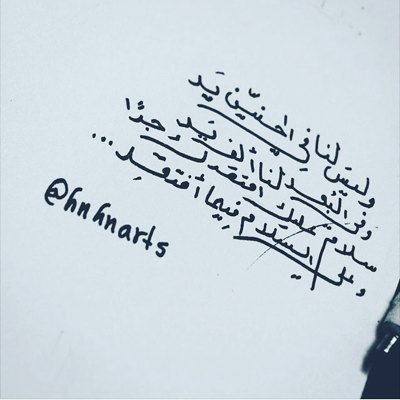 وليس لنا في الحنين يَد
وفي البُعد لنا ألف يَد
سلامٌ عليك افتقدتك جدًا
وعليّ السلام فيما أفتقِد ...
@hnhnarts